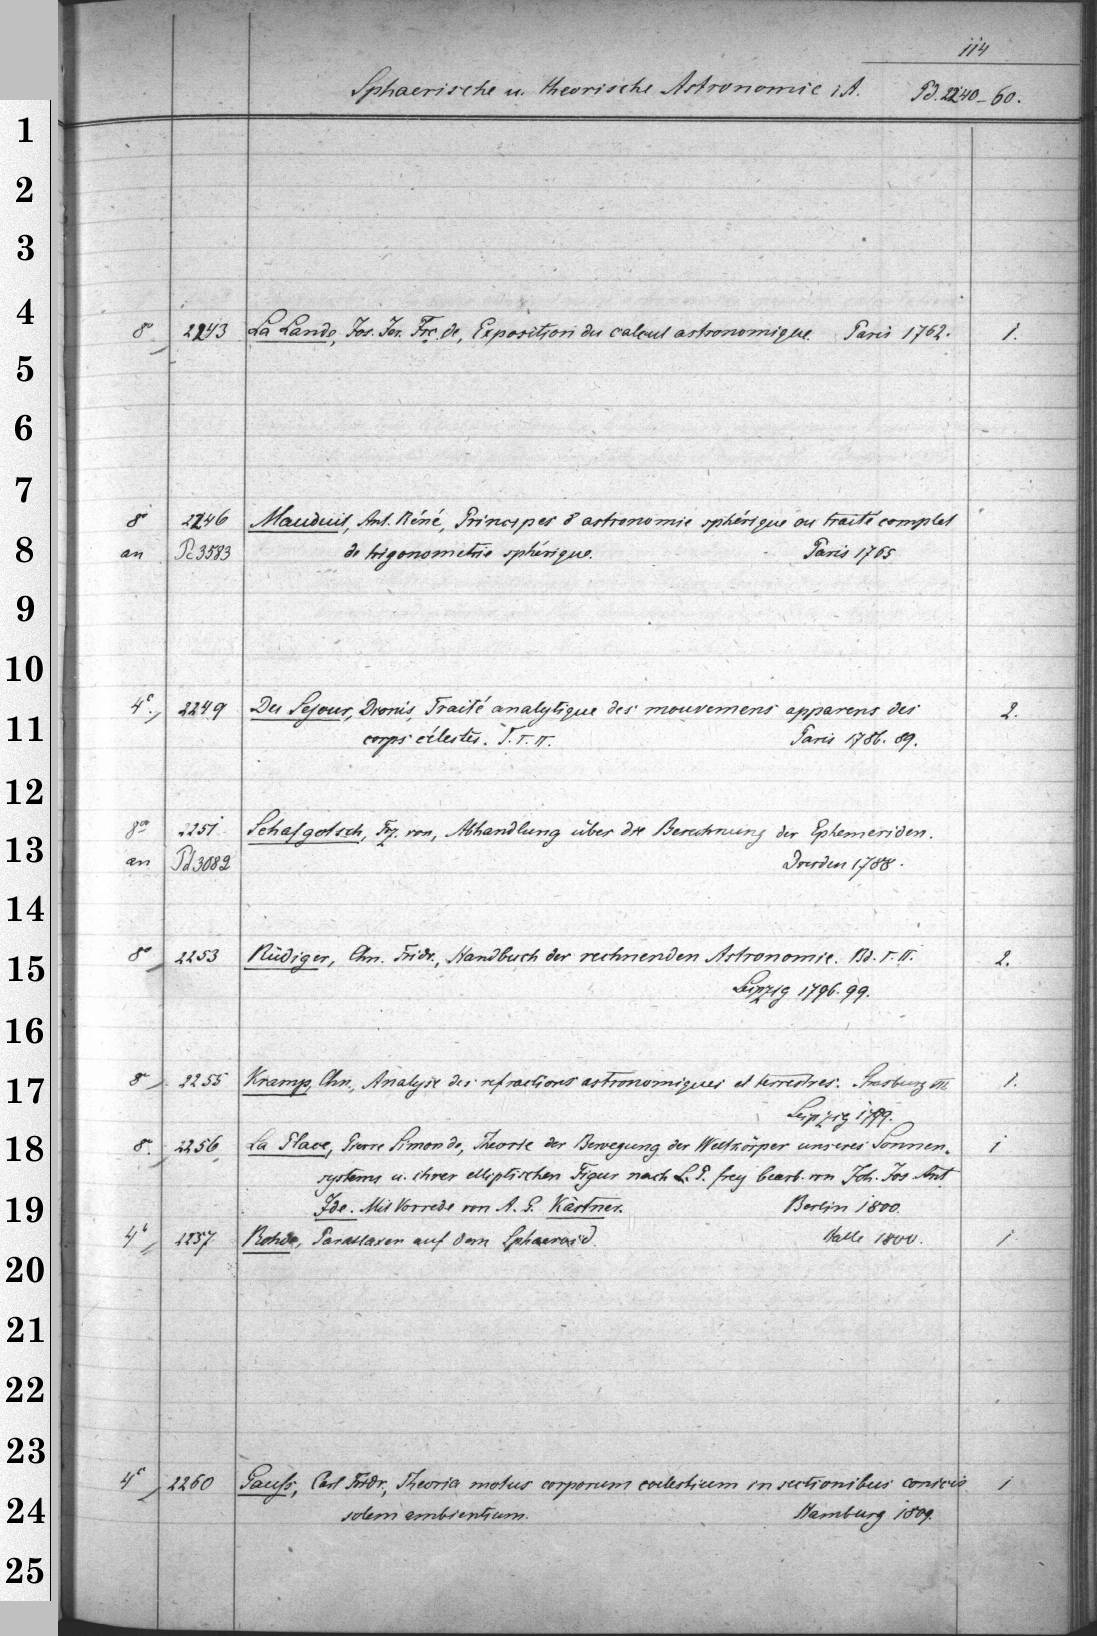 114
Sphaerische u. theorische Astronomie i A. Pd. 2240-60.
1
2
3
4
8° 2243 La Lande, Jos. Jer. Frç. de, Exposition du calcul astronomique. Paris 1762. 1.
5
6
7
8° 2246 Mauduit, Ant. Réné, Principes d'astronomie sphérique ou traité complet
8
an Pc 3583 de trigonometrie sphérique. Paris 1765
9
10
4° 2249 Du Sejour, Dionis, Traité analytique des mouvemens apparens des 2.
11
corps célestes. T. I. II. Paris 1786. 89.
12
8° 2251 Schafgotsch, Frz. von, Abhandlung über die Berechnung der Ephemeriden.
13
an Pd 3082 Dresden 1788.
14
8° 2253 Rüdiger, Chn. Fridr., Handbuch der rechnenden Astronomie. Bd. I. II. 2.
15
Leipzig 1796. 99.
16
8° 2255 Kramp, Chn., Analyse des refractions astronomiques et terrestres. Strasburg 1.
17
Leipzig 1799.
18
8. 2256 La Place, Pierre Simon de, Theorie der Bewegung der Weltkörper unseres Sonnen- 1
systems u. ihrer elliptischen Figur nach L. P. frey bearb. von Joh. Jos Ant
19
Ide. Mit Vorrede von A. G. Kästner. Berlin 1800.
4° 2257 Rohde, Parallaxen auf dem Sphaeroid. Halle 1800. 1
20
21
22
23
4° 2260 Gauss, Carl Fridr., Theoria motus corporum coelestium in sectionibus conicis 1
24
solem ambientium. Hamburg 1809.
25